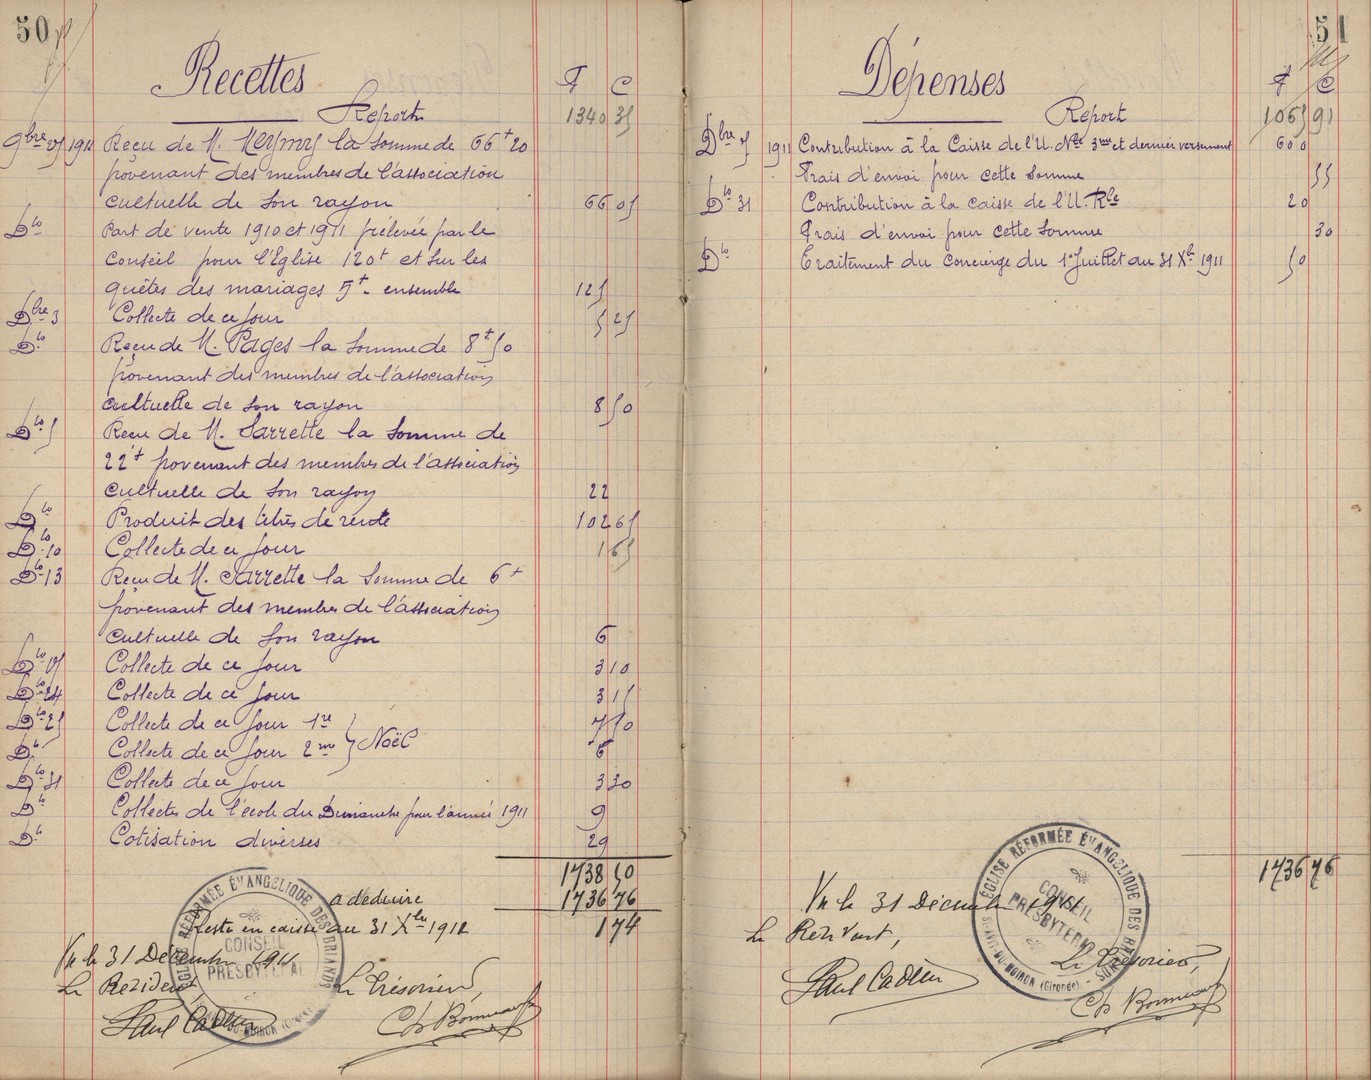 50
Recettes F C
Report 1340 35
9bre 25 1911 Reçu de M. Meymey la somme de 66+20
provenant des membres de l'association
cultuelle de son rayon 66 05
Dto Part de vente 1910 et 1911 prélevée par le
conseil pour l'Eglise 120+ et sur les
quêtes des mariages 5+ ensemble 125
Dbre 3 Collecte de ce jour 5 25
Dto Reçu de M. Pagès la somme de 8+50
provenant des membres de l'association
cultuelle de son rayon 8 50
Dto 5 Reçu de M. Sarrette la somme de
22+ provenant des membres de l'association
cultuelle de son rayon 22
Dto Produit des titres de rente 102 65
Dto 10 Collecte de ce jour 1 65
Dto 13 Reçu de M. Sarrette la somme de 6+
provenant des membres de l'association
cultuelle de son rayon 6
Dto 17 Collecte de ce jour 3 10
Dto 24 Collecte de ce jour 3 15
Dto 25 Collecte de ce jour 1re 7 50
Dto Collecte de ce jour 2me Noël 6
Dto 31 Collecte de ce jour 3 30
Dto Collectes de l'école du Dimanche pour l'année 1911 9
Dto Cotisation diverses 29
1738 50
a déduire 1736 76
Reste en caisse au 31 Xbre 1911 1 74
Vu le 31 Décembre 1911
Le Président Le Trésorier,
Paul Cadier Ch Bonneau
EGLISE RÉFORMÉE ÉVANGELIQUE DES BRIANDS
CONSEIL
PRESBYTERAL
51
Dépenses F C
Report 1065 91
Dbre 7 1911 Contribution à la Caisse de l'U. Nle 3me et dernier versement 600
Frais d'envoi pour cette somme 55
Dto 31 Contribution à la caisse de l'U. Rle 20
Frais d'envoi pour cette somme 30
Dto Traitement du Concierge du 1er Juillet au 31 Xbre 1911 50
1736 76
Vu le 31 Décembre 1911
Le Président, Le Trésorier,
Paul Cadier Ch Bonneau
ÉGLISE RÉFORMÉE ÉVANGELIQUE DES BRIANDS
CONSEIL
PRESBYTERAL
St-AVIT-DU-MOIRON (Gironde)